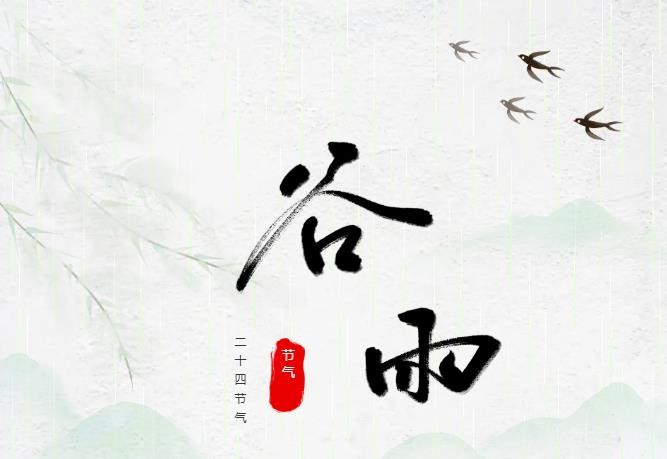 谷雨
节气
二十四节气